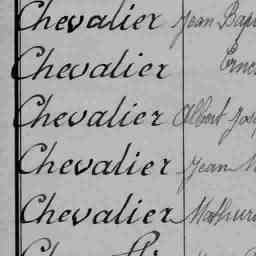 Chevalier Jean Bap
Chevalier Erne
Chevalier Albert Jos
Chevalier Jean
Chevalier Mathur